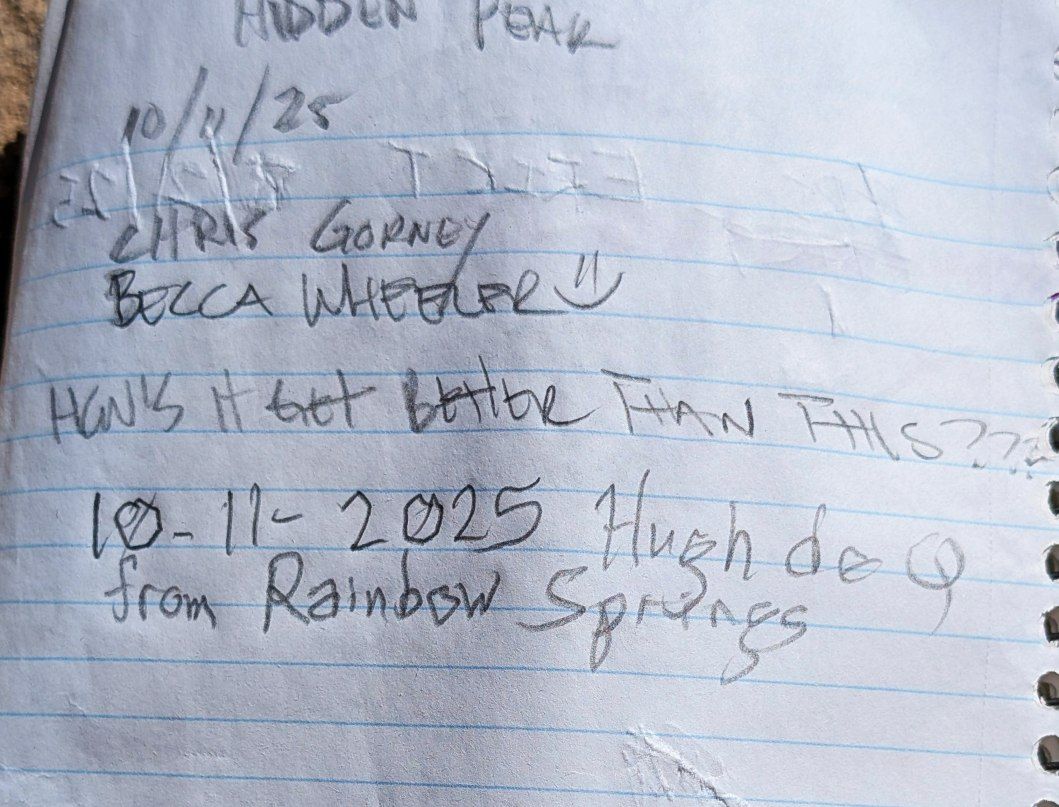 HIDDEN PEAK
10/11/25
CHRIS GORNEY
BECCA WHEELER
HOW'S IT GET BETTER THAN THIS???
10-11-2025 Hugh de Q
from Rainbow Springs